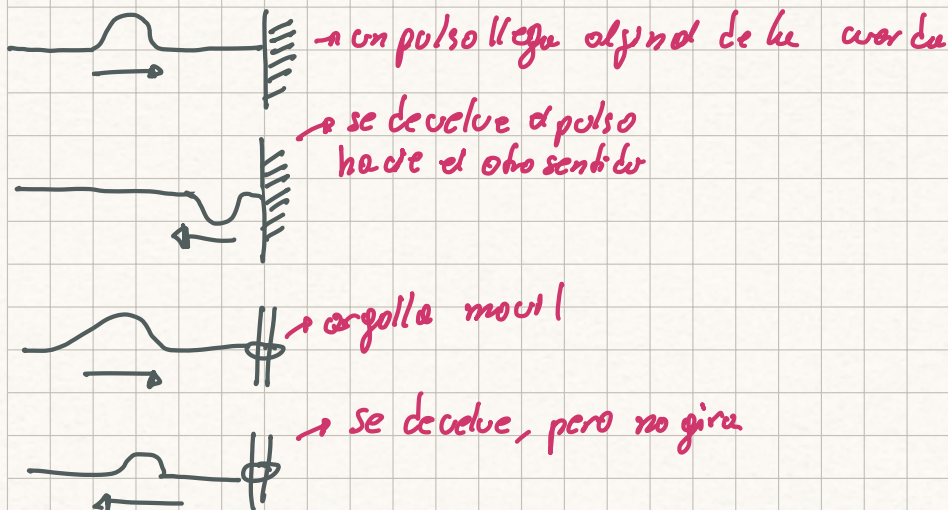 un pulso llega al final de la cuerda
se devuelve el pulso
hacia el otro sentido
argolla movil
se devuelve, pero no gira